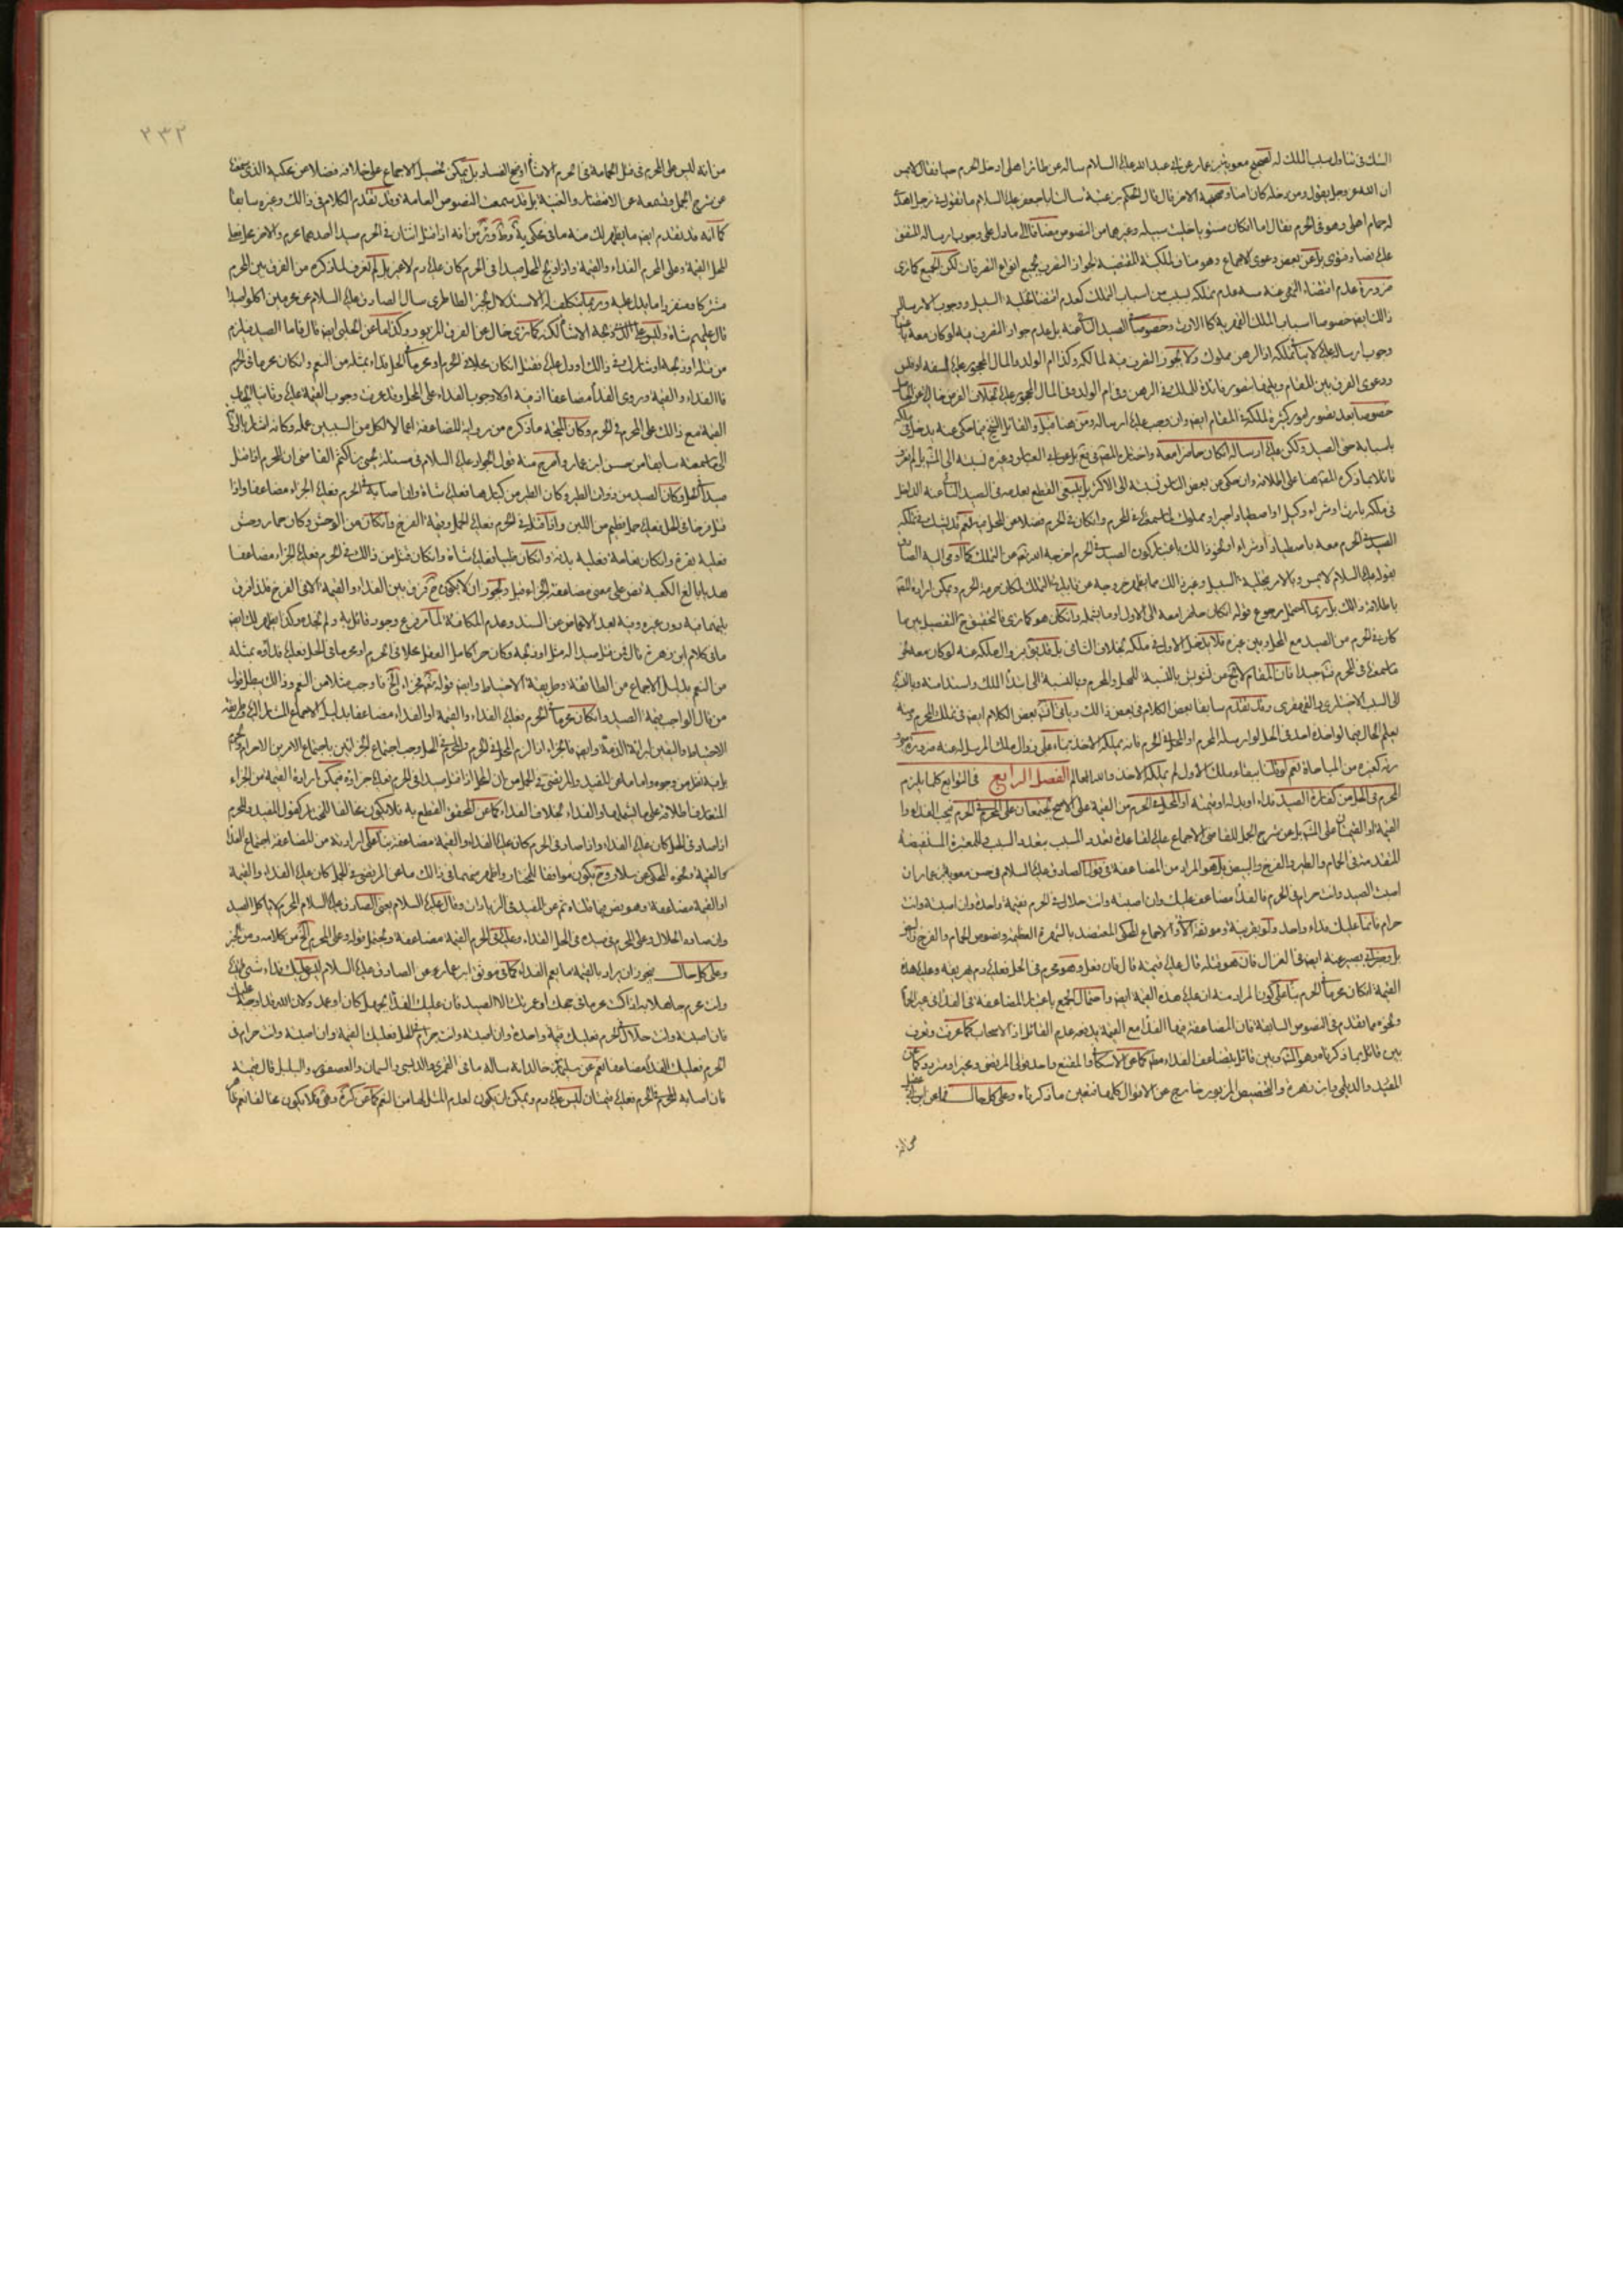 الشك في تناول سبب الملك له لصحيح معوية بن عمار عن ابي عبد الله عليه السلام ساله عن طائر اهلي ادخل الحرم حيا فقال لا يمس
ان الله عز وجل يقول ومن دخله كان امنا وصحيحه الاخر قال قال الحكم بن عتيبة سالت ابا جعفر عليه السلام ما تقول في رجل اهدى
له حمام اهلي وهو في الحرم فقال اما ان كان مستويا خليت سبيله وغيرهما من النصوص مضافا الى ما دل على وجوب ارساله المتفق
عليه نصا وفتوى بل عن بعض دعوى الاجماع وهو مناف للملكية المقتضية لجواز التصرف بجميع انواع التصرفات لكن الجميع كما ترى
ضرورة عدم اقتضاء النهي عنه مسه عدم تملكه بسبب من اسباب التملك كعدم اقتضاء تخلية السبيل ووجوب الارسال
ذلك ايضا خصوصا اسباب الملك القهرية كالارث وخصوصا الصيد النائي عنه بل عدم جواز التصرف فيه لو كان معه
وجوب ارساله عليه لا ينافي تملكه اذ الرهن مملوك ولا يجوز التصرف فيه لمالكه وكذا ام الولد والمال المحجور عليه لسفه او فلس
ودعوى الفرق بين المقام وبينها بتصور فائدة للملك في الرهن وفي ام الولد وفي المال المحجور عليه بخلاف الفرض
خصوصا بعد تصور امور كثيرة للملكية في المقام ايضا وان وجب عليه ارساله ومن هنا قيل والقائل الشيخ فيما حكي عنه يدخل في ملكه
باسبابه حتى الصيد ولكن عليه ارساله ان كان حاضرا معه
قائلا بما ذكره المصنف هنا على اطلاقه وان حكي عن بعض الناس نسبته الى الاكثر بل ينبغي القطع بعدمه في الصيد النائي عنه الداخل
في ملكه بارث او شراء وكيل او اصطياد اجير او مملوك
الصيد في الحرم معه باصطياد او شراء او نحو ذلك باعتبار كون الصيد في الحرم اخرجه الله تعالى من التملك كما اومى اليه الصادق
بقوله عليه السلام لا يمس وبالامر بتخلية السبيل وغير ذلك مما يظهر خروجه عن قابلية التملك لمكان حرمة الحرم ويمكن ارادة المصنف
باطلاقه ذلك بل ربما احتمل رجوع قوله ان كان حاضرا معه الى الاول او ما يشمله وان كان هو كما ترى فالتحقيق ح التفصيل بين ما
كان في الحرم من الصيد مع المحل وبين غيره فلا يدخل الاول في ملكه بخلاف الثاني بل قد يقوى زوال ملكه عنه لو كان معه محرز
فتامل في المقام لا يخ من تشويش بالنسبة للمحل والمحرم وبالنسبة الى ابتداء الملك واستدامته وبالنسبة
الى السبب الاختياري والقهري وقد تقدم سابقا بعض الكلام في بعض ذلك وياتي انشاء بعض الكلام ايضا في تملك المحرم ومنه
يعلم الحال فيما لو اخذه احد في الحل لو ارسله المحرم او المحل في الحرم فانه يملكه الاخذ بناء على زوال ملك المرسل له عنه ضرورة صيرورته
كغيره من المباحاة نعم لو قلنا ببقاء ملك الاول لم يملكه الاخذ والله العالم الفصل الرابع في التوابع كلما يلزم
المحرم في الحل من كفارة الصيد فداء او بدله او قيمته او المحل في الحرم من القيمة على الاصح يجتمعان على المحرم في الحرم فيجب الفداء والقيمة
القيمة او القيمتان على الشهر بل عن شرح الجمل للقاضي الاجماع عليه لقاعدة تعدد السبب بتعدد السبب وللمعتبرة المستفيضة
المتقدمة في الحمام والطير والفرخ والبيض بل هو المراد من المضاعفة في قول الصادق عليه السلام في حسن معوية بن عمار ان
اصبت الصيد وانت حرام في الحرم فالفداء مضاعف عليك وان اصبته وانت حلال في الحرم فقيمة واحدة وان اصبته وانت
حرام فانما عليك فداء واحد ولو بقرينة وموثقة والاجماع المحكي المعتضد بالشهرة العظيمة ونصوص الحمام والفرخ
بل وخبر ابي بصير عنه ايضا في الغزال فان هو قتله قال عليه قيمته قال فان فعل وهو محرم في الحل فعليه دم يهريقه وعليه هذه
القيمة ان كان محرما في الحرم بناء على كون المراد منه ان عليه هذه القيمة ايضا واحتمال الجمع باعتبار المضاعفة في الفداء
ونحوه مما تقدم في النصوص السابقة فان المضاعفة فيها الفداء مع القيمة يدفعه عدم القائل اذ الاصحاب كما عرفت وتعرف
بين قائل بما ذكرناه وهو الشهر وبين قائل بتضاعف الفداء مطلقا كما عن الاسكافي والمقنع واحد قولي المرتضى ومخير او متردد كما عن
المفيد والديلمي وابن زهرة والتخصيص المزبور خارج عن الاقوال كلها فتعين ما ذكرناه وعلى كل حال فما عن ابن ابي عقيل
من انه
٢٣٢
من انه ليس على المحرم في قتل الحمامة في الحرم الا شاة واضح الفساد بل يمكن تحصيل الاجماع على خلافه فضلا عن محكيه الذي سمعته
عن شرح الجمل وسمعته عن الانتصار والغنية بل قد سمعت النصوص العامة وقد تقدم الكلام في ذلك وغيره سابقا
كما انه قد تقدم ايضا ما يظهر لك منه ما في محكي يه وط وئر من انه اذا قتل اثنان في الحرم صيدا احدهما محرم والاخر محل فعلى
المحل القيمة وعلى المحرم الفداء والقيمة واذا ذبح المحل صيدا في الحرم كان عليه دم لا غير بل لم نعرف لما ذكره من الفرق بين المحرم
مشتركا ومنفردا ما يدل عليه
قال عليهم شاة وليس على الذي ذبحه الا شاة لكنه كما ترى خال عن الفرق المزبور وكذا ما عن الحلبي ايضا قال فاما الصيد فيلزم
من قتله او ذبحه او شارك في ذلك او دل عليه فقتل ان كان محلا في الحرم او محرما في الحل فداءه بمثله من النعم وان كان محرما في الحرم
فالفداء والقيمة وروى الفداء مضاعفا
القيمة مع ذلك على المحرم في الحرم وكان الحجة ما ذكره من رواية المضاعفة اعمالا لكل من السببين عمله وكانه اشار بالرواية
الى ما سمعته سابقا من حسن ابن عمار واصرح منه قول الجواد عليه السلام في مسئلة يحيى بن اكثم القاضي ان المحرم اذا قتل
صيدا في الحل وكان الصيد من ذوات الطير وكان الطير من كبارها فعليه شاة وان اصابه في الحرم فعليه الجزاء مضاعفا واذا
قتل فرخا في الحل فعليه حمل فطيم من اللبن واذا قتله في الحرم فعليه الحمل وقيمة الفرخ وان كان من الوحش وكان حمار وحش
فعليه بقرة وان كان نعامة فعليه بدنة وان كان ظبيا فعليه شاة وان كان قتل من ذلك في الحرم فعليه الجزاء مضاعفا
هديا بالغ الكعبة
فيه دون غيره وفيه بعد الاغماض عن السند وعدم المكافئة لما مر منع وجود قائل به ولم نجده وكذا يظهر لك ايضا
ما في كلام ابن زهرة قال من قتل صيدا له مثل او ذبحه وكان حرا كامل العقل محلا في الحرم او محرما في الحل فعليه فداؤه بمثله
من النعم بدليل الاجماع من الطائفة وطريقة الاحتياط وايضا قوله تعالى فجزاء الخ فاوجب مثلا من النعم وذلك يبطل قول
من قال الواجب قيمة الصيد وان كان محرما في الحرم فعليه الفداء والقيمة او الفداء مضاعفا بدليل الاجماع المشار اليه وطريقة
الاحتياط واليقين لبرائة الذمة وايضا فالجزاء اذا لزم المحل في الحرم والمحرم في الحل وجب اجتماع الجزائين باجتماع الامرين الاحرام والحرم
بل فيه نظر من وجوه واما ما عن المفيد والمرتضى في الجمل من ان المحل اذا قتل صيدا في الحرم فعليه جزاؤه فيمكن ارادة القيمة من الجزاء
المتعارف اطلاقه على ما يشملها والفداء بخلاف الفداء كما عن المحقق القطع به فلا يكون مخالفا للمختار كقول المفيد والمحرم
اذا صاد في الحل كان عليه الفداء واذا صاد في الحرم كان عليه الفداء والقيمة مضاعفة بناء على ارادته من المضاعفة اجتماع الفداء
والقيمة ونحوه المحكي عن سلار وح يكون موافقا للمختار واظهر منهما في ذلك ما عن المرتضى في الجمل كان عليه الفداء والقيمة
او القيمة مضاعفة وهو نص فيما قلناه نعم عن المفيد في الزيادات وقال عليه السلام يعني الصادق عليه السلام المحرم لا ياكل الصيد
وان صاده الحلال وعلى المحرم في صيده في الحل الفداء وعليه في الحرم القيمة مضاعفة ويحتمل قوله وعلى المحرم الخ من كلامه ومن الخبر
وعلى كل حال فيجوز ان يراد بالقيمة ما يعم الفداء كما في موثق ابن عمار عن الصادق عليه السلام ليس عليك فداء شيء اتيته
وانت محرم جاهلا به اذا كنت محرما في حجك او عمرتك الا الصيد فان عليك الفداء بجهل كان او عمد ولان الله قد اوجبه عليك
فان اصبته وانت حلال في الحرم فعليك قيمة واحدة وان اصبته وانت حرام في الحل فعليك القيمة وان اصبته وانت حرام في
الحرم فعليك الفداء مضاعفا نعم عن سليمان بن خالد انه ساله ما في القمري والدبسي والسمان والعصفور والبلبل قال قيمته
فان اصابه المحرم في الحرم فعليه قيمتان ليس عليه دم ويمكن ان يكون لعدم المثل لها من النعم